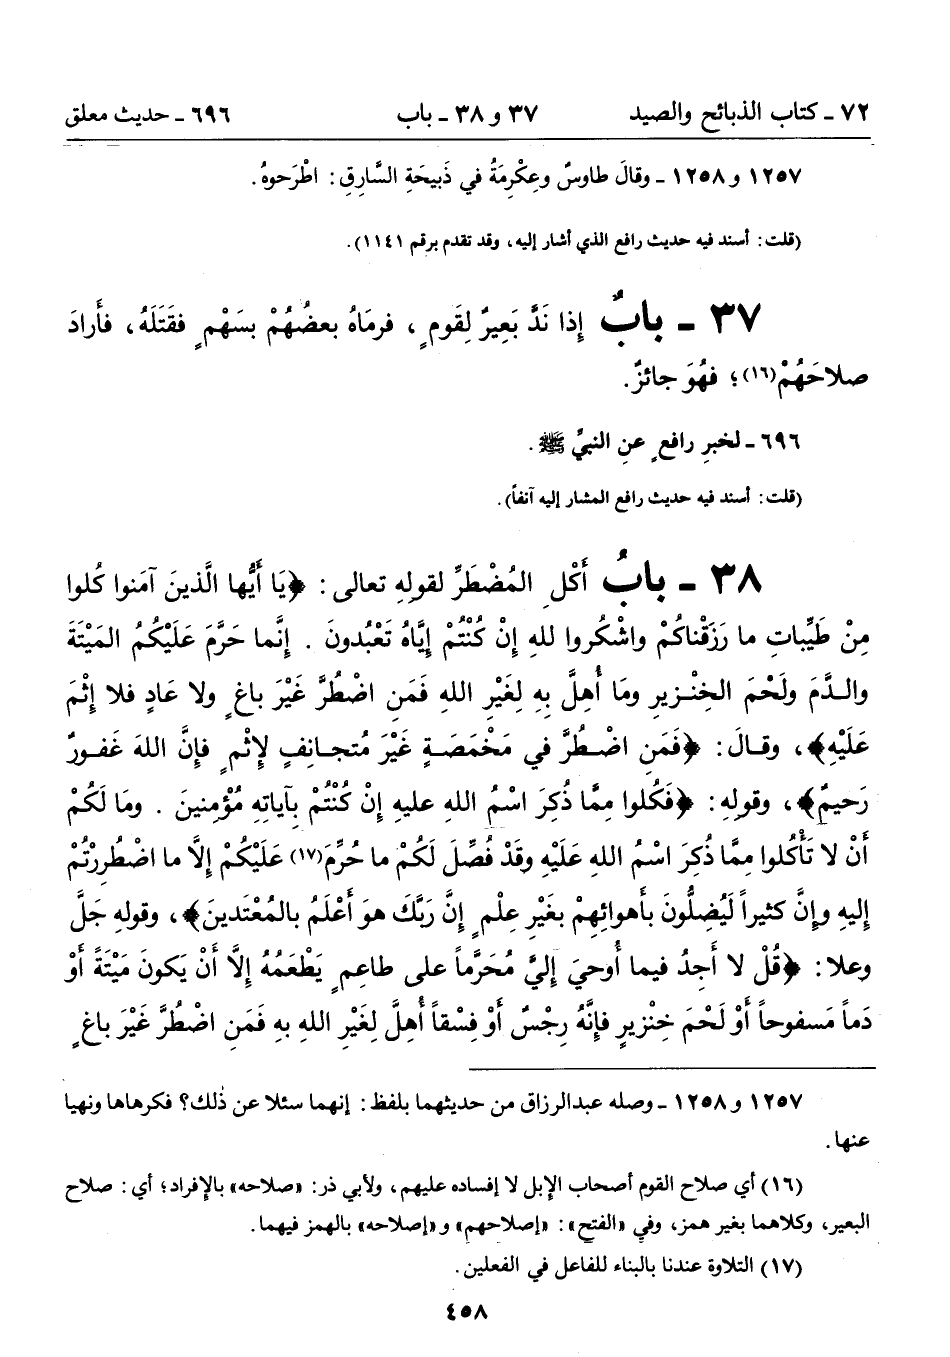 ٧٢ - كتاب الذبائح والصيد ٣٧ و ٣٨ - باب ٦٩٦ - حديث معلق
١٢٥٧ و ١٢٥٨ - وقالَ طاوسٌ وعِكْرِمَةُ في ذَبيحَةِ السَّارِقِ: اطْرَحوهُ.
(قلت: أسند فيه حديث رافع الذي أشار إليه، وقد تقدم برقم ١١٤١).
٣٧ - بابٌ إذا نَدَّ بَعِيرٌ لِقَومٍ، فرمَاهُ بعضُهُمْ بسَهْمٍ فقَتَلَهُ، فأَرادَ
صلاحَهُمْ(١٦)؛ فهُوَ جائزٌ.
٦٩٦ - لخبرِ رافعٍ عنِ النبيِّ ﷺ.
(قلت: أسند فيه حديث رافع المشار إليه آنفاً).
٣٨ - بابُ أَكْلِ المُضْطَرِّ لقولِهِ تعالى: ﴿يَا أَيُّها الَّذينَ آمَنوا كُلوا
مِنْ طَيِّباتِ ما رَزَقْناكُمْ واشْكُروا للهِ إنْ كُنْتُمْ إيَّاهُ تَعْبُدونَ . إنَّما حَرَّمَ عَلَيْكُمُ المَيْتَةَ
والدَّمَ ولَحْمَ الخِنْزيرِ ومَا أُهِلَّ بِهِ لِغَيْرِ اللهِ فَمَنِ اضْطُرَّ غَيْرَ باغٍ ولا عَادٍ فلا إثْمَ
عَلَيْهِ﴾، وقالَ: ﴿فَمَنِ اضْطُرَّ في مَخْمَصَةٍ غَيْرَ مُتجانِفٍ لإثْمٍ فإنَّ اللهَ غَفورٌ
رَحيمٌ﴾، وقولِهِ: ﴿فَكُلوا مِمَّا ذُكِرَ اسْمُ اللهِ عليهِ إنْ كُنْتُمْ بآياتِهِ مُؤْمِنينَ . ومَا لَكُمْ
أنْ لا تَأْكُلوا مِمَّا ذُكِرَ اسْمُ اللهِ عَلَيْهِ وقَدْ فُصِّلَ لَكُمْ ما حُرِّمَ(١٧) عَلَيْكُمْ إلَّا ما اضْطُرِرْتُمْ
إليهِ وإنَّ كثيراً لَيُضِلُّونَ بأَهوائِهِمْ بغَيْرِ عِلْمٍ إنَّ رَبَّكَ هوَ أَعْلَمُ بالمُعْتَدينَ﴾، وقولِهِ جَلَّ
وعلا: ﴿قُلْ لا أَجِدُ فيما أُوحيَ إليَّ مُحَرَّماً على طاعِمٍ يَطْعَمُهُ إلَّا أَنْ يَكونَ مَيْتَةً أَوْ
دَماً مَسفوحاً أَوْ لَحْمَ خِنْزيرٍ فإنَّهُ رِجْسٌ أَوْ فِسْقاً أُهِلَّ لِغَيْرِ اللهِ بِهِ فَمَنِ اضْطُرَّ غَيْرَ باغٍ
١٢٥٧ و ١٢٥٨ - وصله عبدالرزاق من حديثهما بلفظ: إنهما سئلا عن ذٰلك؟ فكرهاها ونهيا
عنها.
(١٦) أي صلاح القوم أصحاب الإبل لا إفساده عليهم، ولأبي ذر: «صلاحه» بالإفراد؛ أي: صلاح
البعير، وكلاهما بغير همز، وفي «الفتح»: «إصلاحهم» و«إصلاحه» بالهمز فيهما.
(١٧) التلاوة عندنا بالبناء للفاعل في الفعلين.
٤٥٨